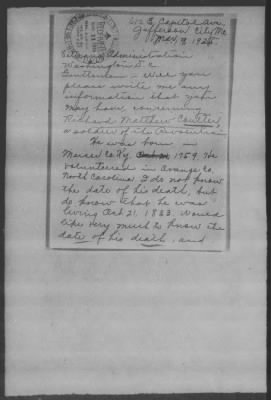 612 E. Capitol Ave.
Jefferson City, Mo.
Veterans Administration
Washington D C
Gentlemen - Will you
please write me any
information that you
may have concerning
Richard Matthew Coulter,
a soldier of the Revolution.
He was born in
Mercer Co Ky. 1759. He
volunteered in Orange Co.
North Carolina. I do not know
the date of his death, but
do know that he was
living Oct 21, 1833. Would
like very much to know the
date of his death, and